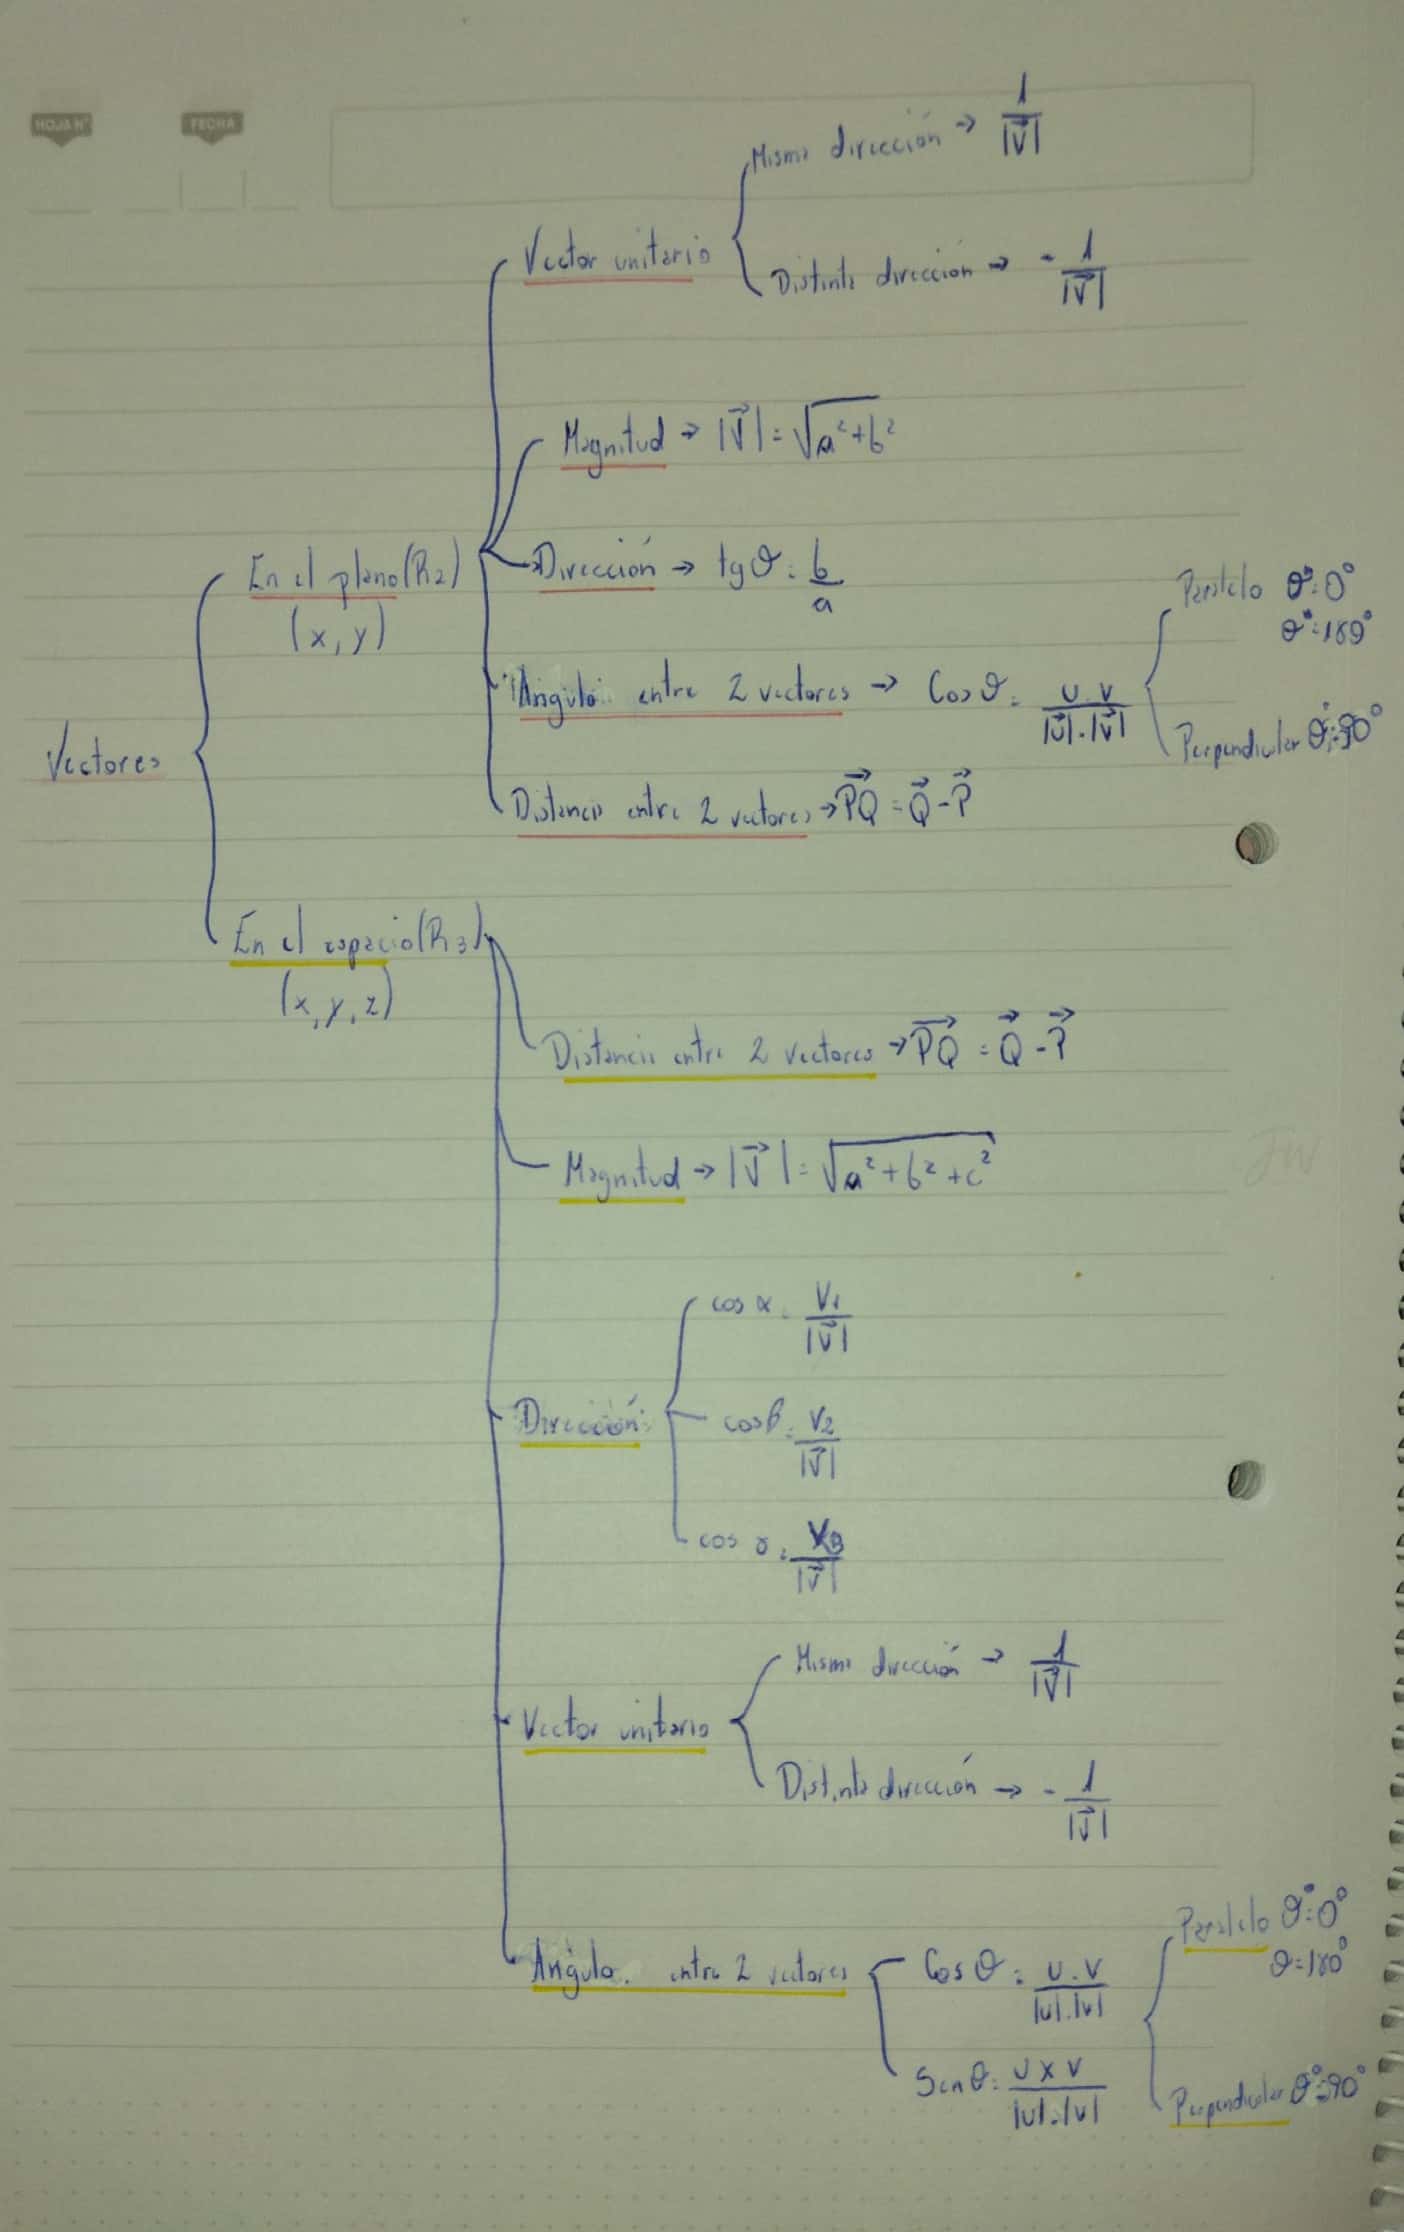 HOJA N°
FECHA
Vectores
En el plano (R2)
(x, y)
Vector unitario
Misma dirección → 1/|V⃗|
Distinta dirección → - 1/|V⃗|
Magnitud → |V⃗| = √a²+b²
Dirección → tgθ = b/a
Angulo entre 2 vectores → Cosθ = u.v/|u⃗|.|v⃗|
Paralelo θ°=0°
θ°=180°
Perpendicular θ°=90°
Distancia entre 2 vectores → P⃗Q⃗ = Q⃗ - P⃗
En el espacio (R3)
(x, y, z)
Distancia entre 2 vectores → P⃗Q⃗ = Q⃗ - P⃗
Magnitud → |V⃗| = √a²+b²+c²
Dirección
cos α = V1/|V⃗|
cos β = V2/|V⃗|
cos γ = V3/|V⃗|
Vector unitario
Misma dirección → 1/|V⃗|
Distinta dirección → - 1/|V⃗|
Angulo entre 2 vectores
Cos θ = u.v/|u|.|v|
Sen θ = u x v/|u|.|v|
Paralelo θ°=0°
θ=180°
Perpendicular θ°=90°